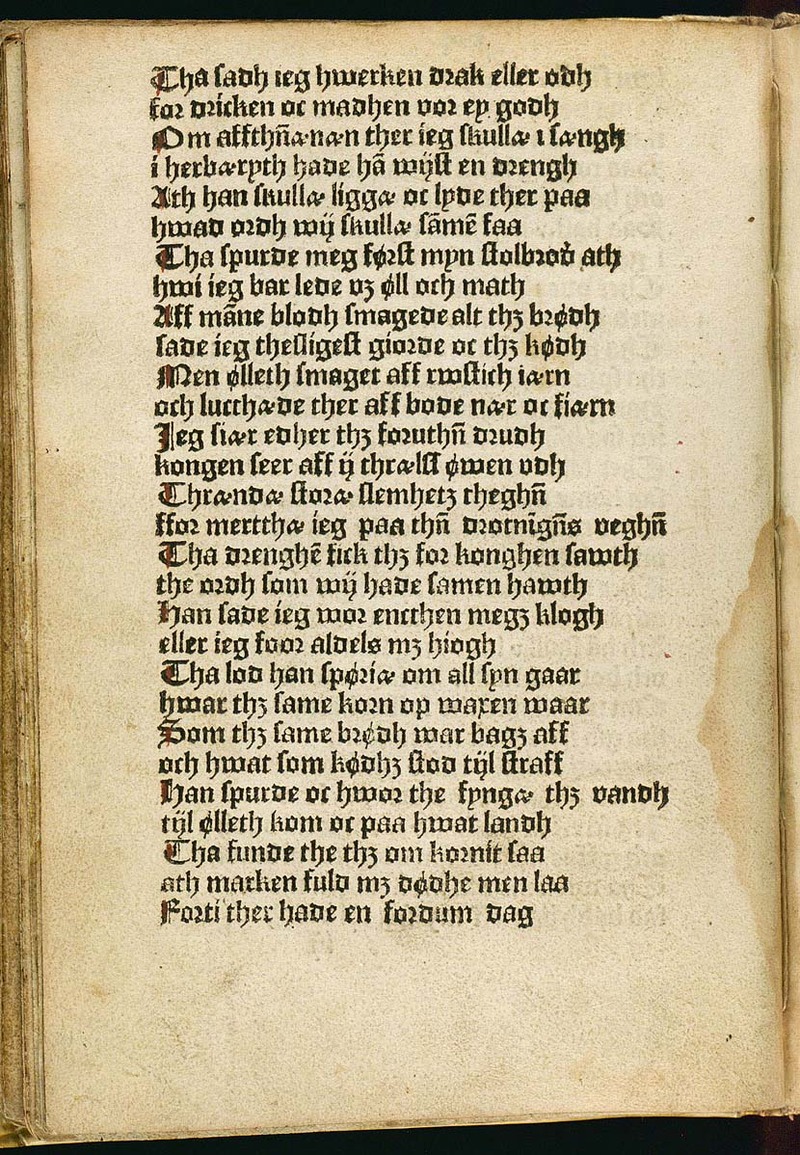 Tha sadh ieg hwerken drak eller odh
for dricken oc madhen vor ey godh
Om affthn̄ænæn ther ieg skullæ i sængh
i herbæryth hade hā wijst en drengh
Ath han skullæ liggæ oc lyde ther paa
hwad ordh wij skullæ sāmē faa
Tha spurde meg først myn stolbrod ath
hwi ieg bar lede vꝫ øll och math
Aff māne blodh smagede alt thꝫ brødh
sade ieg thesligest giorde oc thꝫ kødh
Men ølleth smaget aff rwstich iærn
och lucthæde ther aff bode nær oc fiærn
Jeg siær edher thꝫ foruthn̄ drudh
kongen seer aff ij thrælst øwen vdh
Thrændæ storæ slemhetꝫ theghn̄
ffor merttha ieg paa thn̄ drotnīgn̄s veghn̄
Tha drenghē fick thꝫ for konghen sawth
the ordh som wij hade samen hawth
Han sade ieg wor encthen megꝫ klogh
eller ieg foor aldels mꝫ hiogh
Tha lod han spøriæ om all syn gaar
hwar thꝫ same korn op waxen waar
Som thꝫ same brødh war bagꝫ aff
och hwat som kødhꝫ stod tijl straff
Han spurde oc hwor the fyngæ thꝫ vandh
tijl ølleth kom oc paa hwat landh
Tha funde the thꝫ om kornit saa
ath marken fuld mꝫ dødhe men laa
Forti ther hade en fordum dag